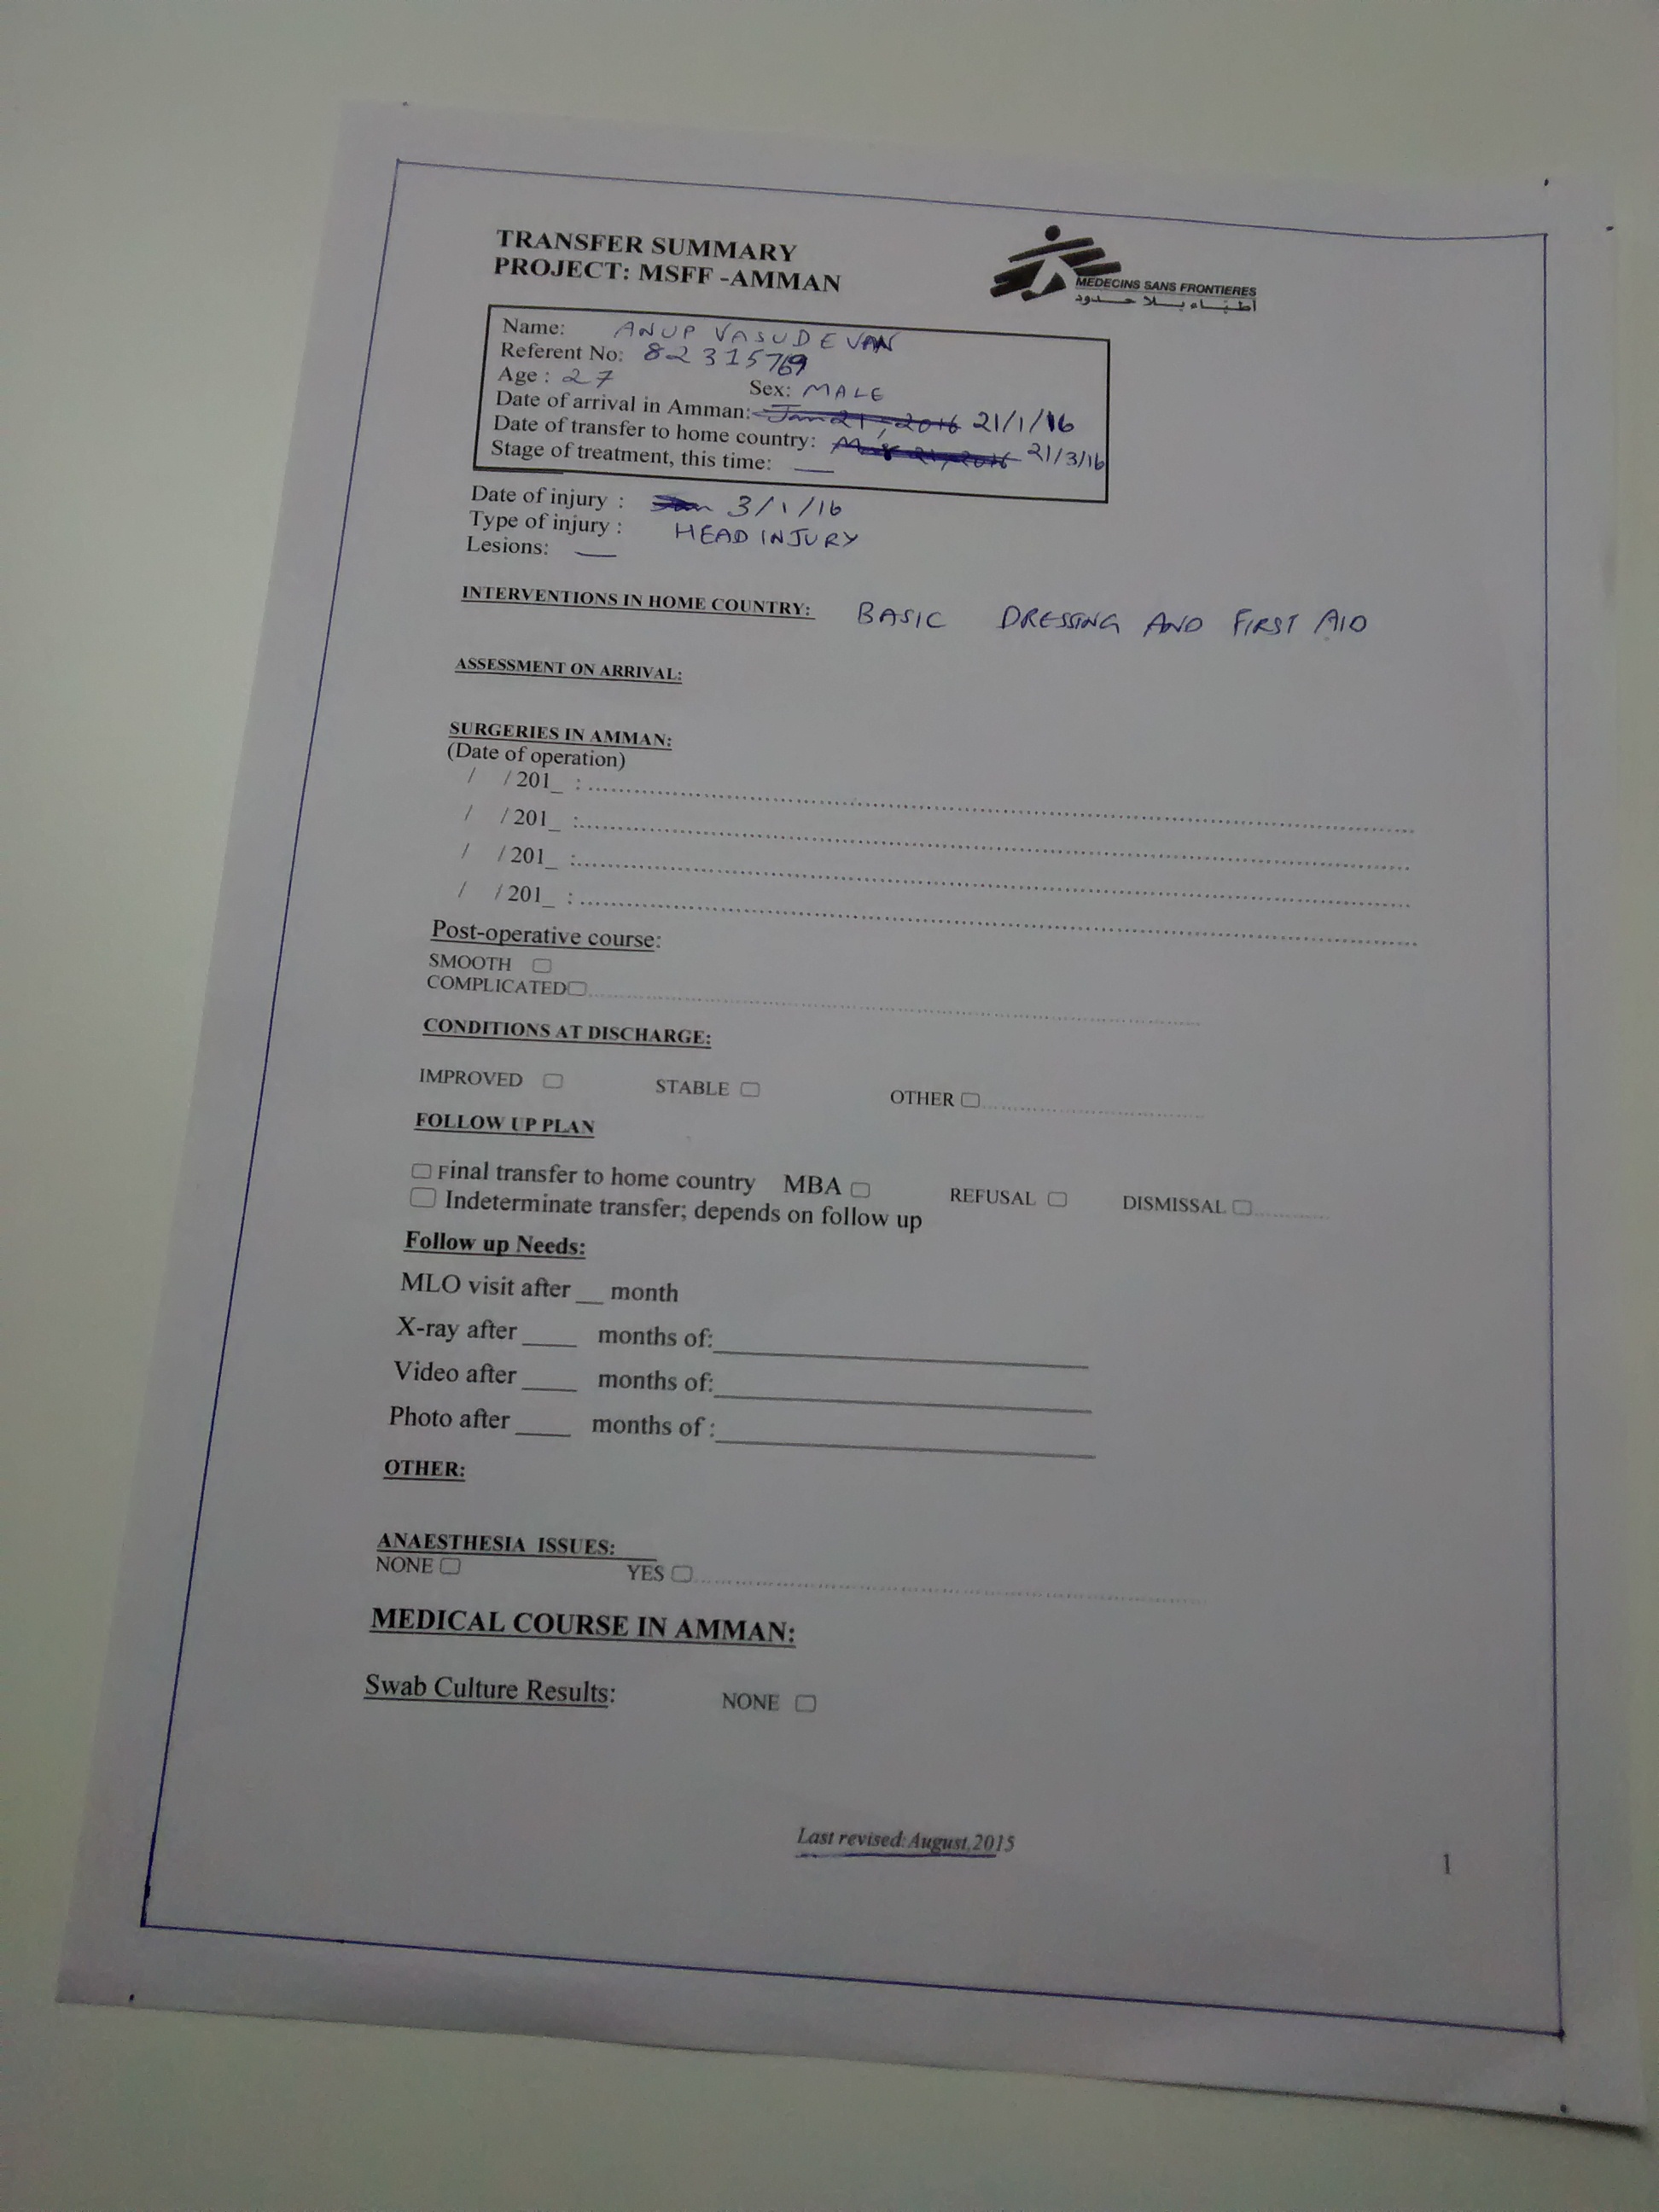 TRANSFER SUMMARY
PROJECT: MSFF -AMMAN
MEDECINS SANS FRONTIERES
أطباء بلا حدود
Name: ANUP VASUDEVAN
Referent No:
Age : 27 Sex: MALE
Date of arrival in Amman: Jan 21, 2016 21/1/16
Date of transfer to home country: 21/3/16
Stage of treatment, this time: __
Date of injury : Jan 3/1/16
Type of injury : HEAD INJURY
Lesions: __
INTERVENTIONS IN HOME COUNTRY: BASIC DRESSING AND FIRST AID
ASSESSMENT ON ARRIVAL:
SURGERIES IN AMMAN:
(Date of operation)
/ / 201_ :
/ / 201_ :
/ / 201_ :
/ / 201_ :
Post-operative course:
SMOOTH
COMPLICATED
CONDITIONS AT DISCHARGE:
IMPROVED STABLE OTHER
FOLLOW UP PLAN
Final transfer to home country MBA REFUSAL DISMISSAL
Indeterminate transfer; depends on follow up
Follow up Needs:
MLO visit after __ month
X-ray after ____ months of:
Video after ____ months of:
Photo after ____ months of :
OTHER:
ANAESTHESIA ISSUES:
NONE YES
MEDICAL COURSE IN AMMAN:
Swab Culture Results: NONE
Last revised: August,2015
1